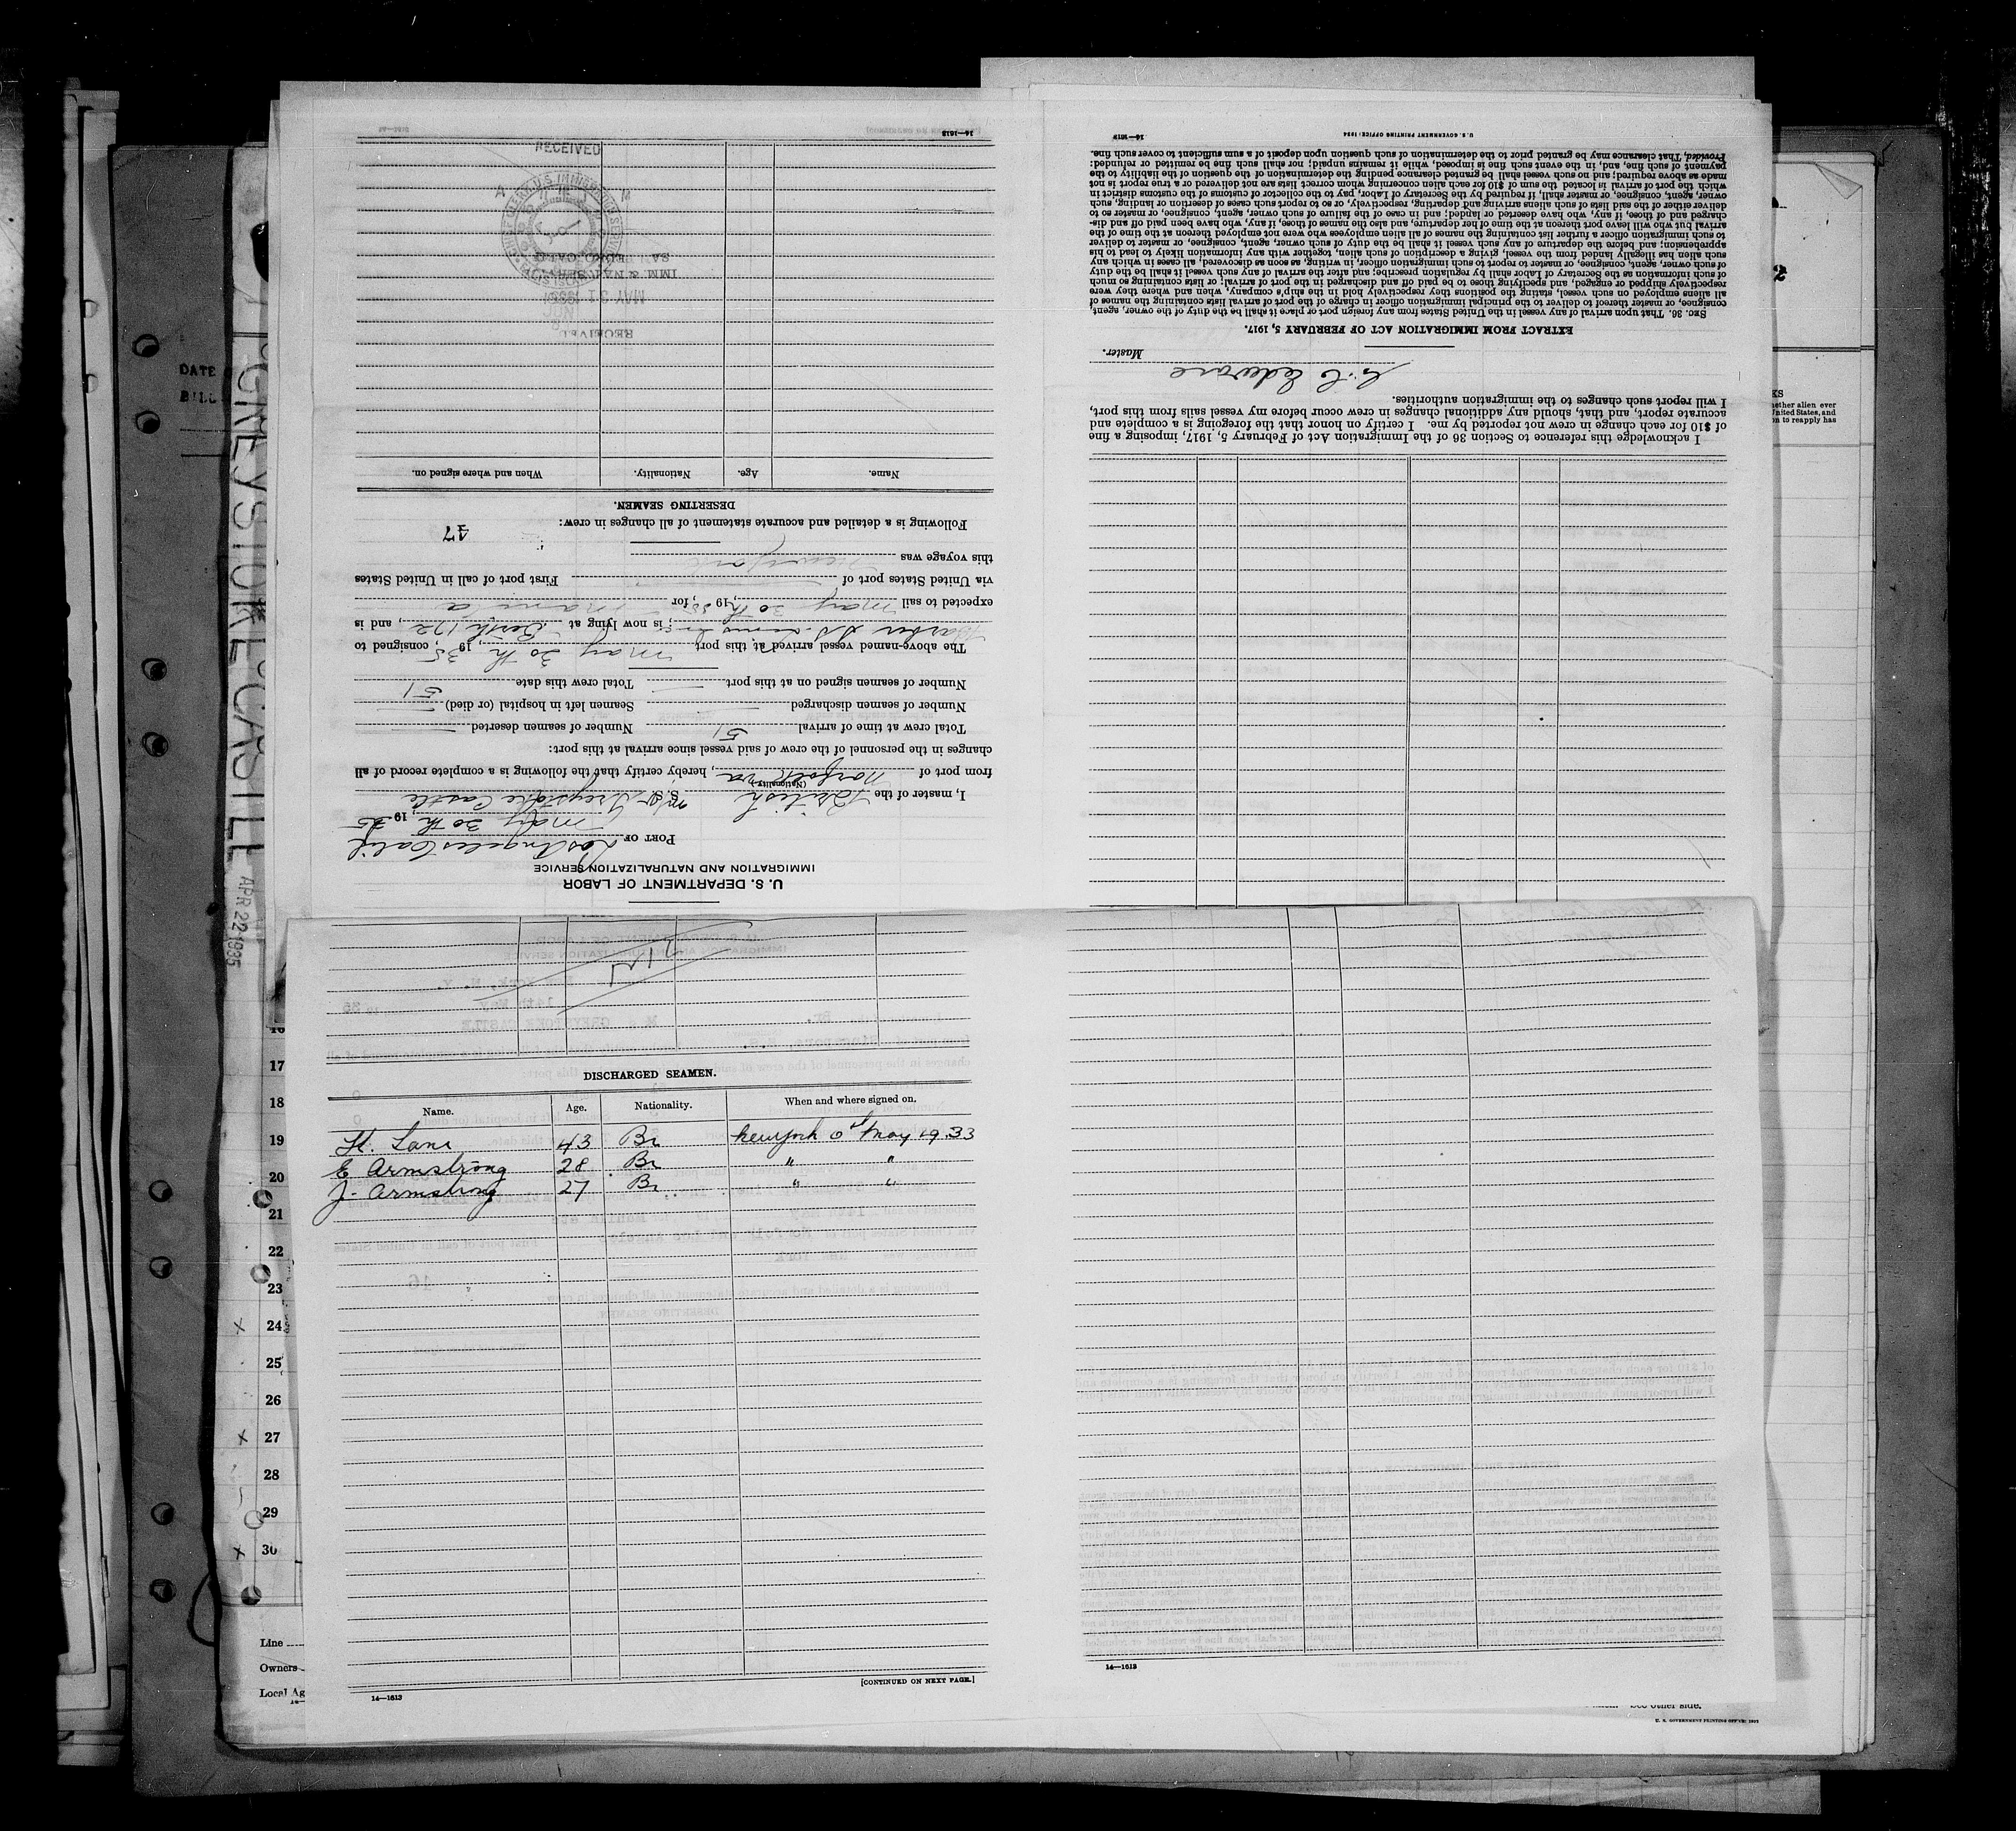 U. S. DEPARTMENT OF LABOR
IMMIGRATION AND NATURALIZATION SERVICE
PORT OF Los Angeles Calif
May 30th, 1935
I, master of the British M/S Greystoke Castle
(Nationality)
from port of Norfolk Va, hereby certify that the following is a complete record of all
changes in the personnel of the crew of said vessel since arrival at this port:
Total crew at time of arrival 51 Number of seamen deserted
Number of seamen discharged Seamen left in hospital (or died)
Number of seamen signed on at this port Total crew this date 51
The above-named vessel arrived at this port May 30th, 1935, consigned to
is now lying at Berth 172, and is
expected to sail May 30th, 1935, for Manila
via United States port of First port of call in United States
this voyage was New York
Following is a detailed and accurate statement of all changes in crew:
47
DESERTING SEAMEN.
Name. Age. Nationality. When and where signed on.
RECEIVED
MAY 31 1935
IMM & NAT SERVICE
RECEIVED
14—1613
I acknowledge this reference to Section 36 of the Immigration Act of February 5, 1917, imposing a fine
of $10 for each change in crew not reported by me. I certify on honor that the foregoing is a complete and
accurate report, and that, should any additional changes in crew occur before my vessel sails from this port,
I will report such changes to the immigration authorities.
Master.
EXTRACT FROM IMMIGRATION ACT OF FEBRUARY 5, 1917.
SEC. 36. That upon arrival of any vessel in the United States from any foreign port or place it shall be the duty of the owner, agent,
consignee, or master thereof to deliver to the principal immigration officer in charge of the port of arrival lists containing the names of
all aliens employed on such vessel, stating the positions they respectively hold in the ship's company, when and where they were
respectively shipped or engaged, and specifying those to be paid off and discharged in the port of arrival; or lists containing so much
of such information as the Secretary of Labor shall by regulation prescribe; and after the arrival of any such vessel it shall be the duty
of such owner, agent, consignee, or master to report to such immigration officer, in writing, as soon as discovered, all cases in which any
such alien has illegally landed from the vessel, giving a description of such alien, together with any information likely to lead to his
apprehension; and before the departure of any such vessel it shall be the duty of such owner, agent, consignee, or master to deliver
to such immigration officer a further list containing the names of all alien employees who were not employed thereon at the time of the
arrival but who will leave port thereon at the time of her departure, and also the names of those, if any, who have been paid off and dis-
charged and of those, if any, who have deserted or landed; and in case of the failure of such owner, agent, consignee, or master so to
deliver either of the said lists of such aliens arriving and departing, respectively, or so to report such cases of desertion or landing, such
owner, agent, consignee, or master shall, if required by the Secretary of Labor, pay to the collector of customs of the customs district in
which the port of arrival is located the sum of $10 for each alien concerning whom correct lists are not delivered or a true report is not
made as above required; and no such vessel shall be granted clearance pending the determination of the question of the liability to the
payment of such fine, and, in the event such fine is imposed, while it remains unpaid; nor shall such fine be remitted or refunded:
Provided, That clearance may be granted prior to the determination of such question upon deposit of a sum sufficient to cover such fine.
14—1613 U. S. GOVERNMENT PRINTING OFFICE: 1934
DATE
GREYSTOKE CASTLE
APR 22 1935
DISCHARGED SEAMEN.
Name. Age. Nationality. When and where signed on.
H. Lane 43 Br New York May 1933
E Armstrong 28 Br " "
J. Armstrong 27 Br " "
[CONTINUED ON NEXT PAGE.]
14—1613
14—1613
16
17
18
19
20
21
22
23
24
25
26
27
28
29
30
Line
Owners
Local Ag
See other side.